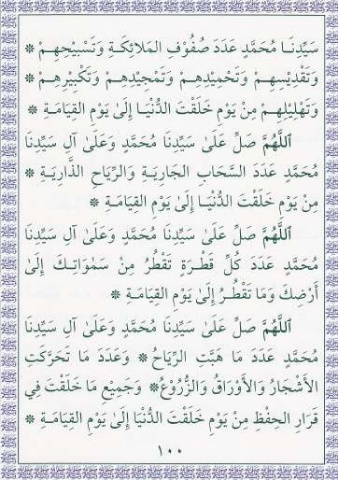 سَيِّدِنَا مُحَمَّدٍ عَدَدَ صُفُوفِ المَلَائِكَةِ وَتَسْبِيحِهِمْ ۞
وَتَقْدِيسِهِمْ وَتَحْمِيدِهِمْ وَتَمْجِيدِهِمْ وَتَكْبِيرِهِمْ ۞
وَتَهْلِيلِهِمْ مِنْ يَوْمِ خَلَقْتَ الدُّنْيَا إِلَىٰ يَوْمِ القِيَامَةِ ۞
اَللَّهُمَّ صَلِّ عَلَىٰ سَيِّدِنَا مُحَمَّدٍ وَعَلَىٰ آلِ سَيِّدِنَا
مُحَمَّدٍ عَدَدَ السَّحَابِ الجَارِيَةِ وَالرِّيَاحِ الذَّارِيَةِ ۞
مِنْ يَوْمِ خَلَقْتَ الدُّنْيَا إِلَىٰ يَوْمِ القِيَامَةِ ۞
اَللَّهُمَّ صَلِّ عَلَىٰ سَيِّدِنَا مُحَمَّدٍ وَعَلَىٰ آلِ سَيِّدِنَا
مُحَمَّدٍ عَدَدَ كُلِّ قَطْرَةٍ تَقْطُرُ مِنْ سَمٰوَاتِكَ إِلَىٰ
أَرْضِكَ وَمَا تَقْطُرُ إِلَىٰ يَوْمِ القِيَامَةِ ۞
اَللَّهُمَّ صَلِّ عَلَىٰ سَيِّدِنَا مُحَمَّدٍ وَعَلَىٰ آلِ سَيِّدِنَا
مُحَمَّدٍ عَدَدَ مَا هَبَّتِ الرِّيَاحُ ۞ وَعَدَدَ مَا تَحَرَّكَتِ
الأَشْجَارُ وَالأَوْرَاقُ وَالزُّرُوعُ ۞ وَجَمِيعِ مَا خَلَقْتَ فِي
قَرَارِ الحِفْظِ مِنْ يَوْمِ خَلَقْتَ الدُّنْيَا إِلَىٰ يَوْمِ القِيَامَةِ ۞
١٠٠